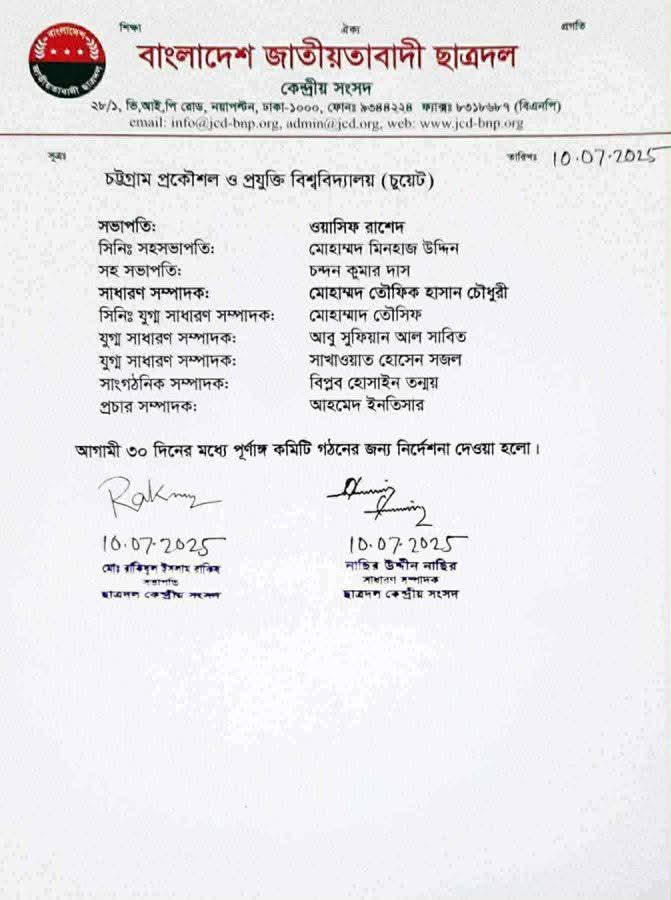 শিক্ষা ঐক্য প্রগতি
বাংলাদেশ
জাতীয়তাবাদী ছাত্রদল
বাংলাদেশ জাতীয়তাবাদী ছাত্রদল
কেন্দ্রীয় সংসদ
২৮/১, ভি,আই,পি রোড, নয়াপল্টন, ঢাকা-১০০০, ফোনঃ ৯৩৪৪২২৪ ফ্যাক্সঃ ৮৩১৮৬৮৭ (বিএনপি)
email: info@jcd-bnp.org, admin@jcd.org, web: www.jcd-bnp.org
সূত্রঃ তারিখঃ 10.07.2025
চট্টগ্রাম প্রকৌশল ও প্রযুক্তি বিশ্ববিদ্যালয় (চুয়েট)
সভাপতি: ওয়াসিফ রাশেদ
সিনিঃ সহসভাপতি: মোহাম্মদ মিনহাজ উদ্দিন
সহ সভাপতি: চন্দন কুমার দাস
সাধারণ সম্পাদক: মোহাম্মদ তৌফিক হাসান চৌধুরী
সিনিঃ যুগ্ম সাধারণ সম্পাদক: মোহাম্মাদ তৌসিফ
যুগ্ম সাধারণ সম্পাদক: আবু সুফিয়ান আল সাবিত
যুগ্ম সাধারণ সম্পাদক: সাখাওয়াত হোসেন সজল
সাংগঠনিক সম্পাদক: বিপ্লব হোসাইন তন্ময়
প্রচার সম্পাদক: আহমেদ ইনতিসার
আগামী ৩০ দিনের মধ্যে পূর্ণাঙ্গ কমিটি গঠনের জন্য নির্দেশনা দেওয়া হলো।
10.07.2025 10.07.2025
মোঃ রাকিবুল ইসলাম রাকিব নাছির উদ্দীন নাছির
সভাপতি সাধারণ সম্পাদক
ছাত্রদল কেন্দ্রীয় সংসদ ছাত্রদল কেন্দ্রীয় সংসদ